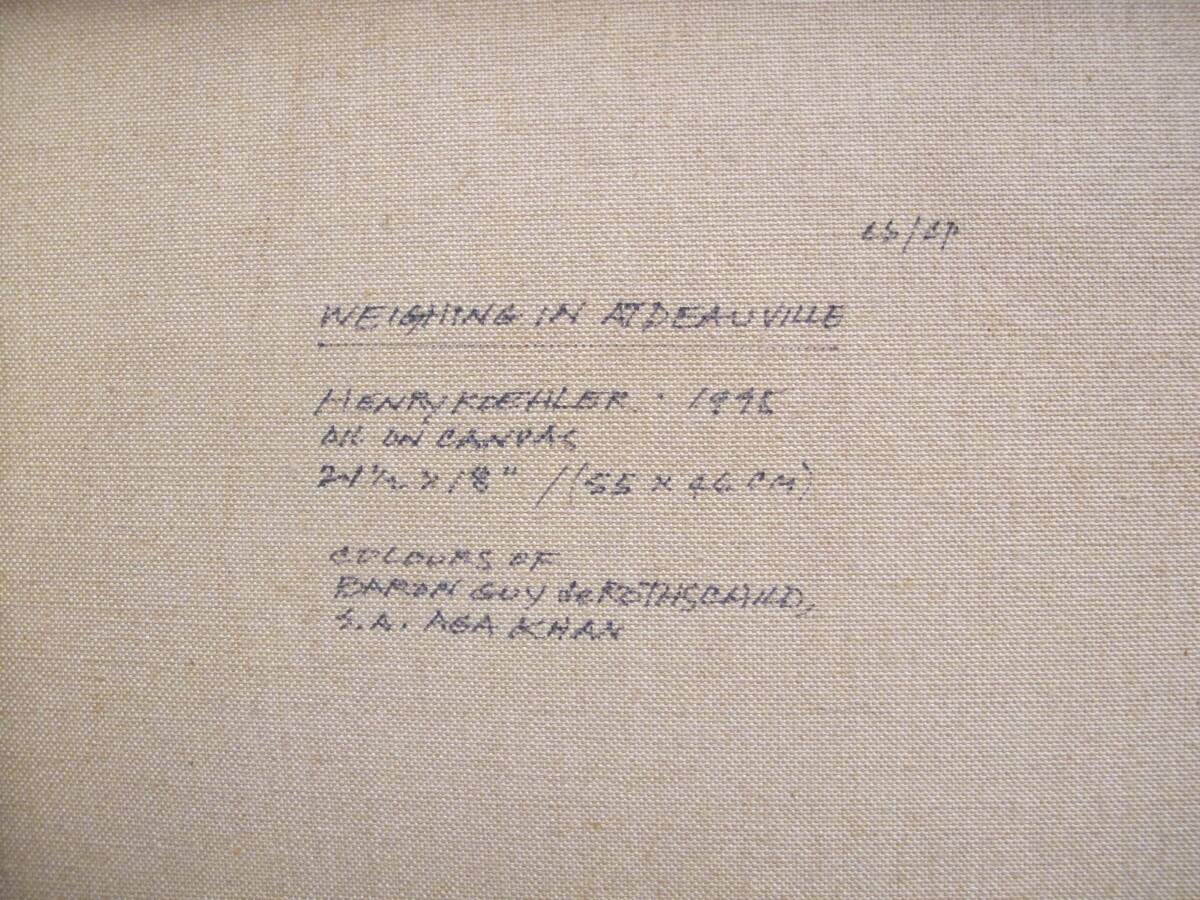 WEIGHING IN AT DEAUVILLE
HENRY KOEHLER · 1995
OIL ON CANVAS
21½ × 18" / (55 × 46 CM)
COLOURS OF
BARON GUY de ROTHSCHILD,
S.A. AGA KHAN